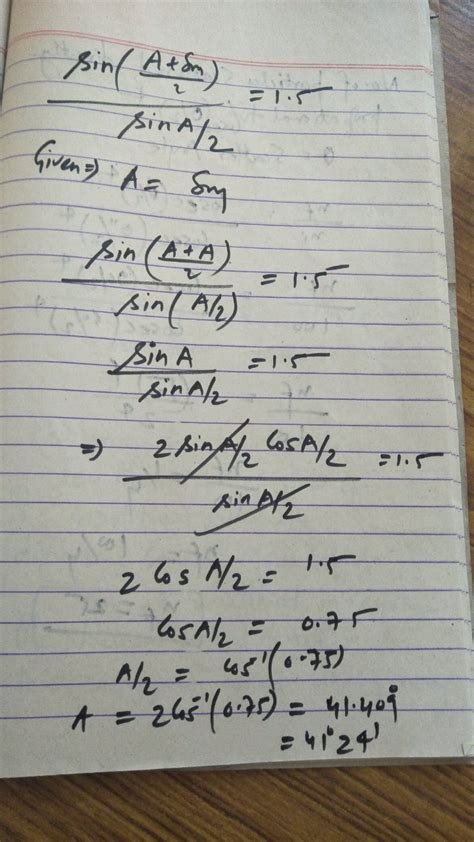 sin(A+δm/2)/sinA/2 = 1.5
Given⇒ A = δm
sin(A+A/2)/sin(A/2) = 1.5
sinA/sinA/2 = 1.5
⇒ 2sinA/2 CosA/2/sinA/2 = 1.5
2 Cos A/2 = 1.5
CosA/2 = 0.75
A/2 = Cos⁻¹(0.75)
A = 2Cos⁻¹(0.75) = 41.409°
= 41°24'